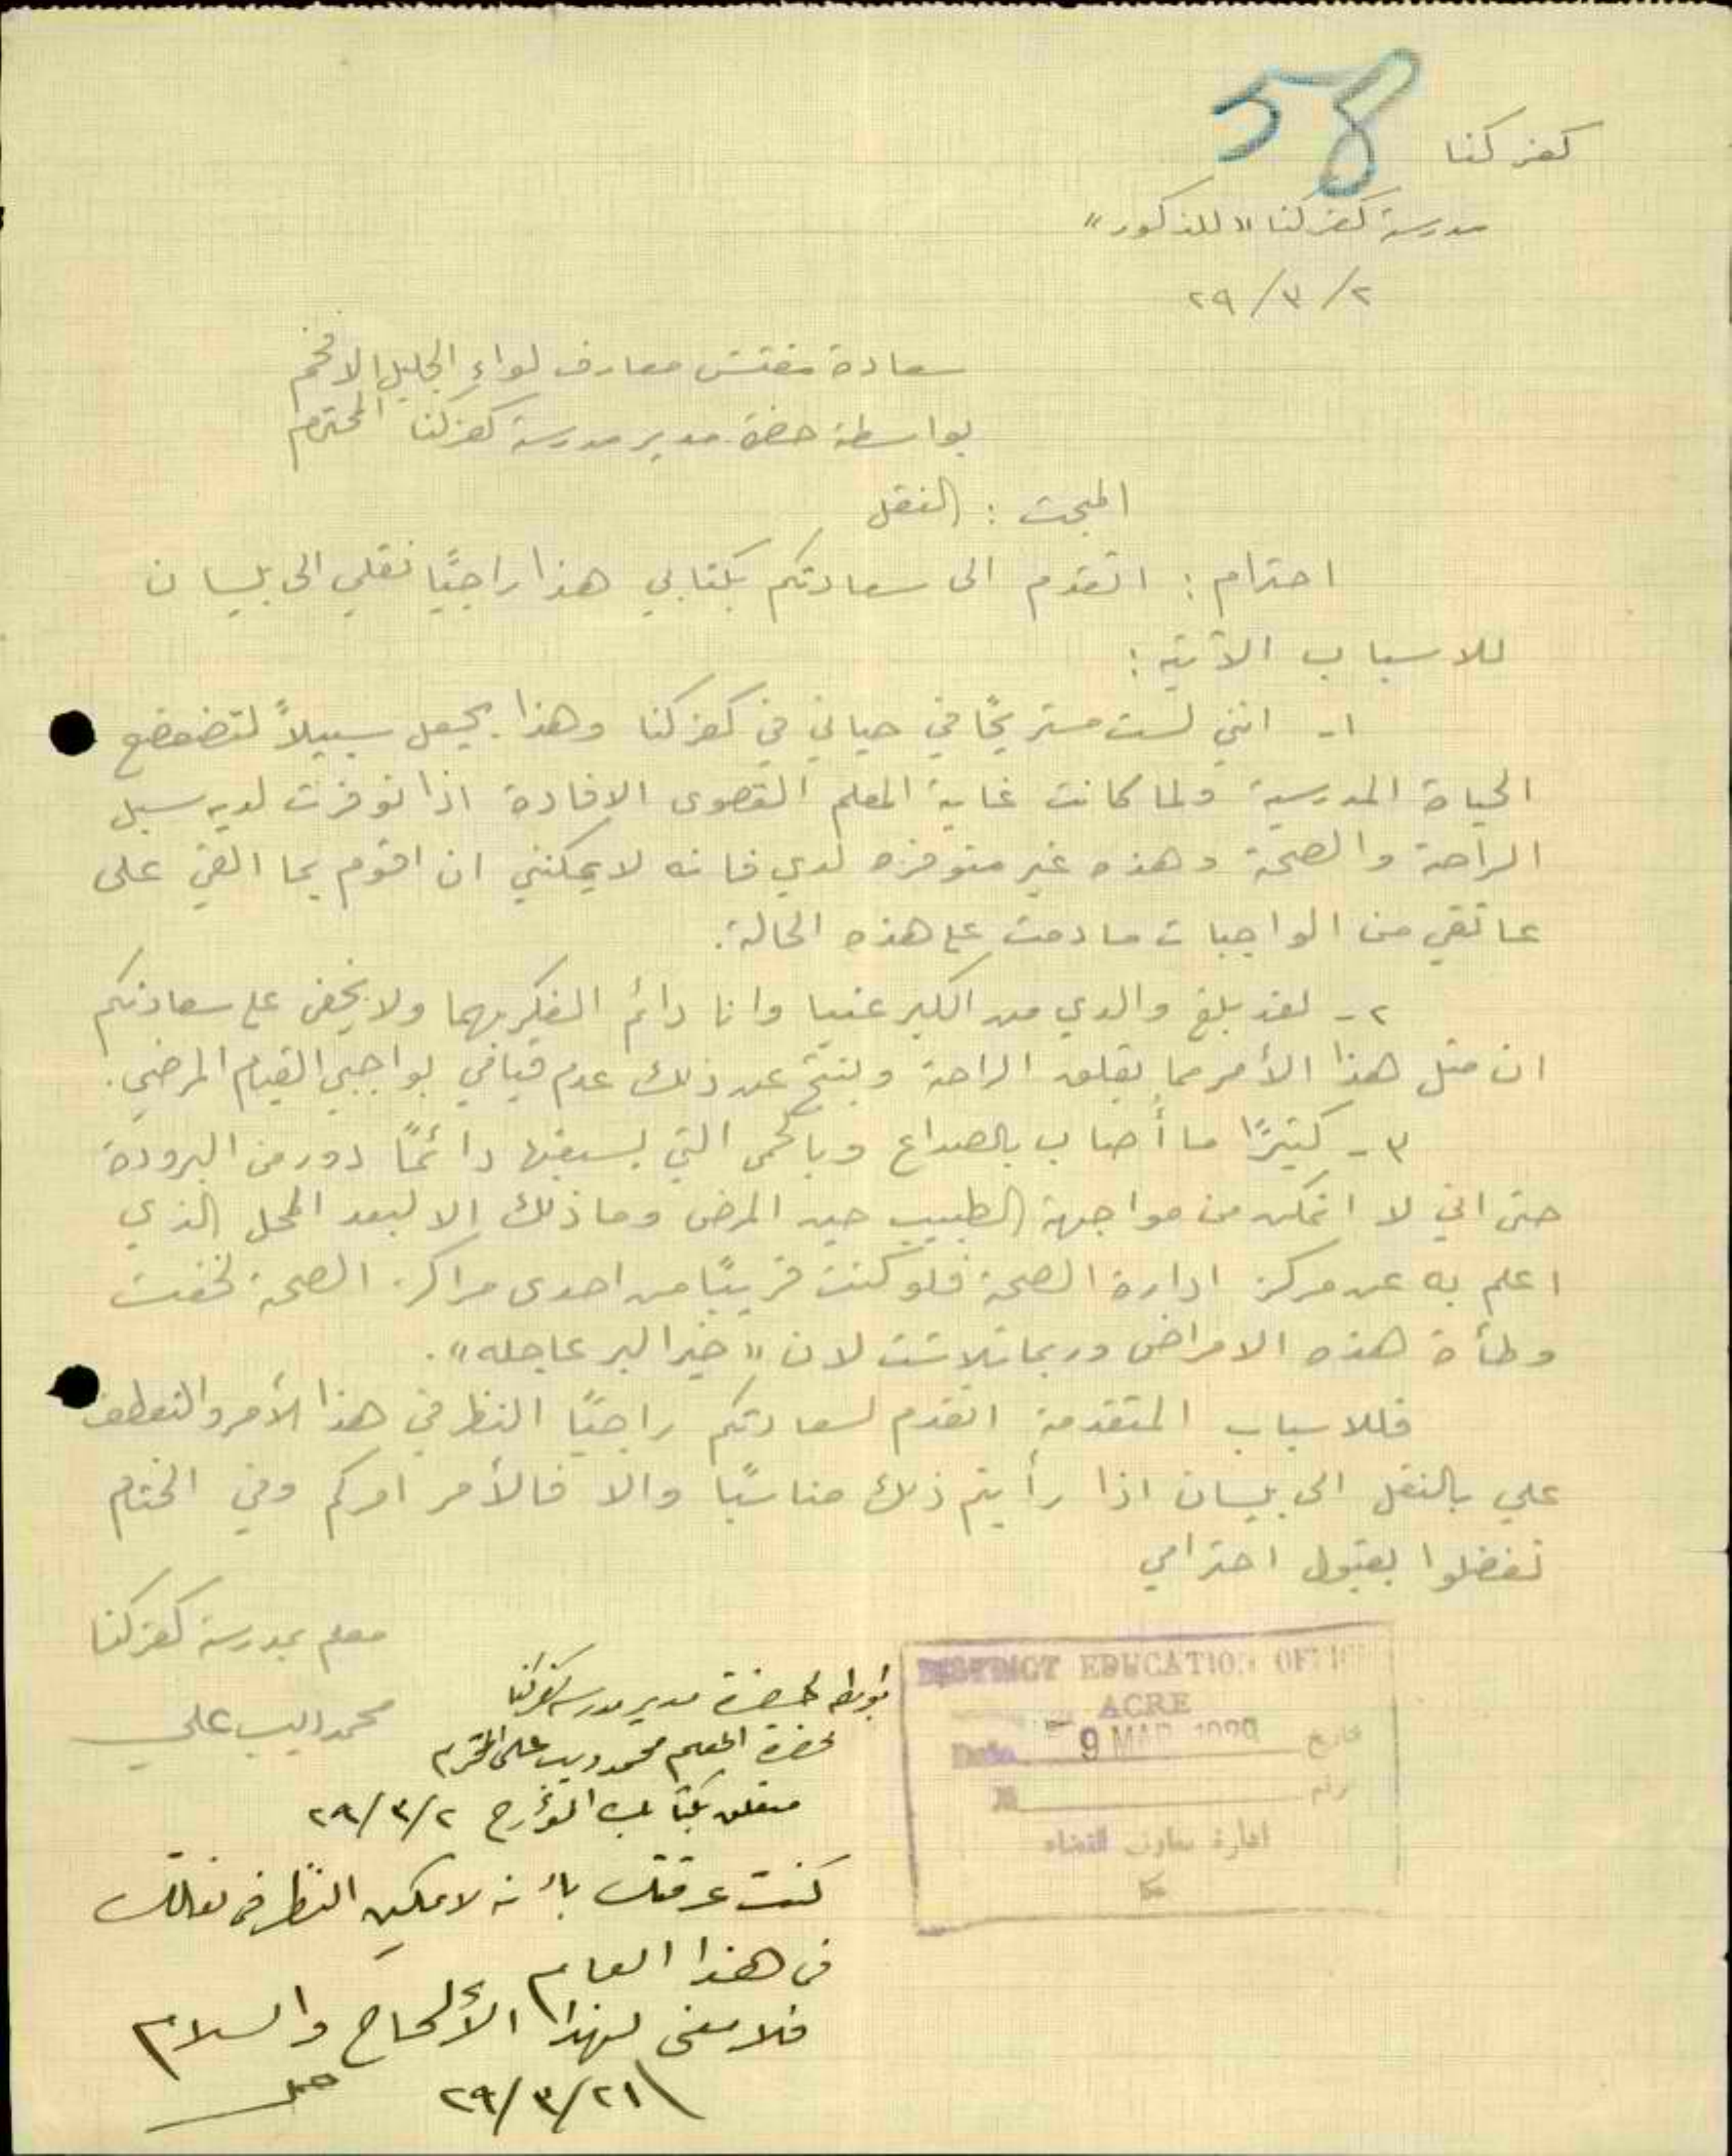 58
كفر كنا
مدرسة كفر كنا "للذكور"
٢/٣/٢٩
سعادة مفتش معارف لواء الجليل الافخم
بواسطة حضرة مدير مدرسة كفر كنا المحترم
المبحث : النقل
احترام : اتقدم الى سعادتكم بكتابي هذا راجيًا نقلي الى بيسان
للاسباب الآتية :
١- انني لست مستريحًا في حياتي في كفر كنا وهذا يجعل سبيلاً لتضعضع
الحياة المدرسية ولما كانت غاية المعلم القصوى الافادة اذا توفرت لديه سبل
الراحة والصحة وهذه غير متوفره لدي فانه لا يمكنني ان اقوم بما القي على
عاتقي من الواجبات ما دمت على هذه الحالة.
٢- لقد بلغ والدي من الكبر عتيا وانا دائم الفكر بهما ولا يخفى على سعادتكم
ان مثل هذا الأمر مما يقلق الراحة وينتج عن ذلك عدم قيامي بواجبي القيام المرضي.
٣- كثيرًا ما أُصاب بالصداع وبالحمى التي يسبقها دائمًا دور من البرودة
حتى اني لا اتمكن من مواجهة الطبيب حين المرض وما ذلك الا لبعد المحل الذي
اعلم به عن مركز ادارة الصحة فلو كنت قريبًا من احدى مراكز الصحة لخفت
وطأة هذه الامراض وربما تلاشت لان "خير البر عاجله".
فللاسباب المتقدمة اتقدم لسعادتكم راجيًا النظر في هذا الأمر والتعطف
علي بالنقل الى بيسان اذا رأيتم ذلك مناسبًا والا فالأمر امركم وفي الختام
تفضلوا بقبول احترامي
معلم بمدرسة كفر كنا
محمد ديب علي
DISTRICT EDUCATION OFFICE
ACRE
Date 9 MAR تاريخ
№ رقم
ادارة معارف القضاء
عكا
بواسطة حضرة مدير مدرسة كفر كنا
حضرة المعلم محمد ديب علي المحترم
متعلق بكتابك المؤرخ ٢/٣/٢٩
كنت عرفتك بأنه لا يمكن النظر في نقلك
في هذا العام
فلا معنى لهذا الألحاح والسلام
٢١/٣/٢٩